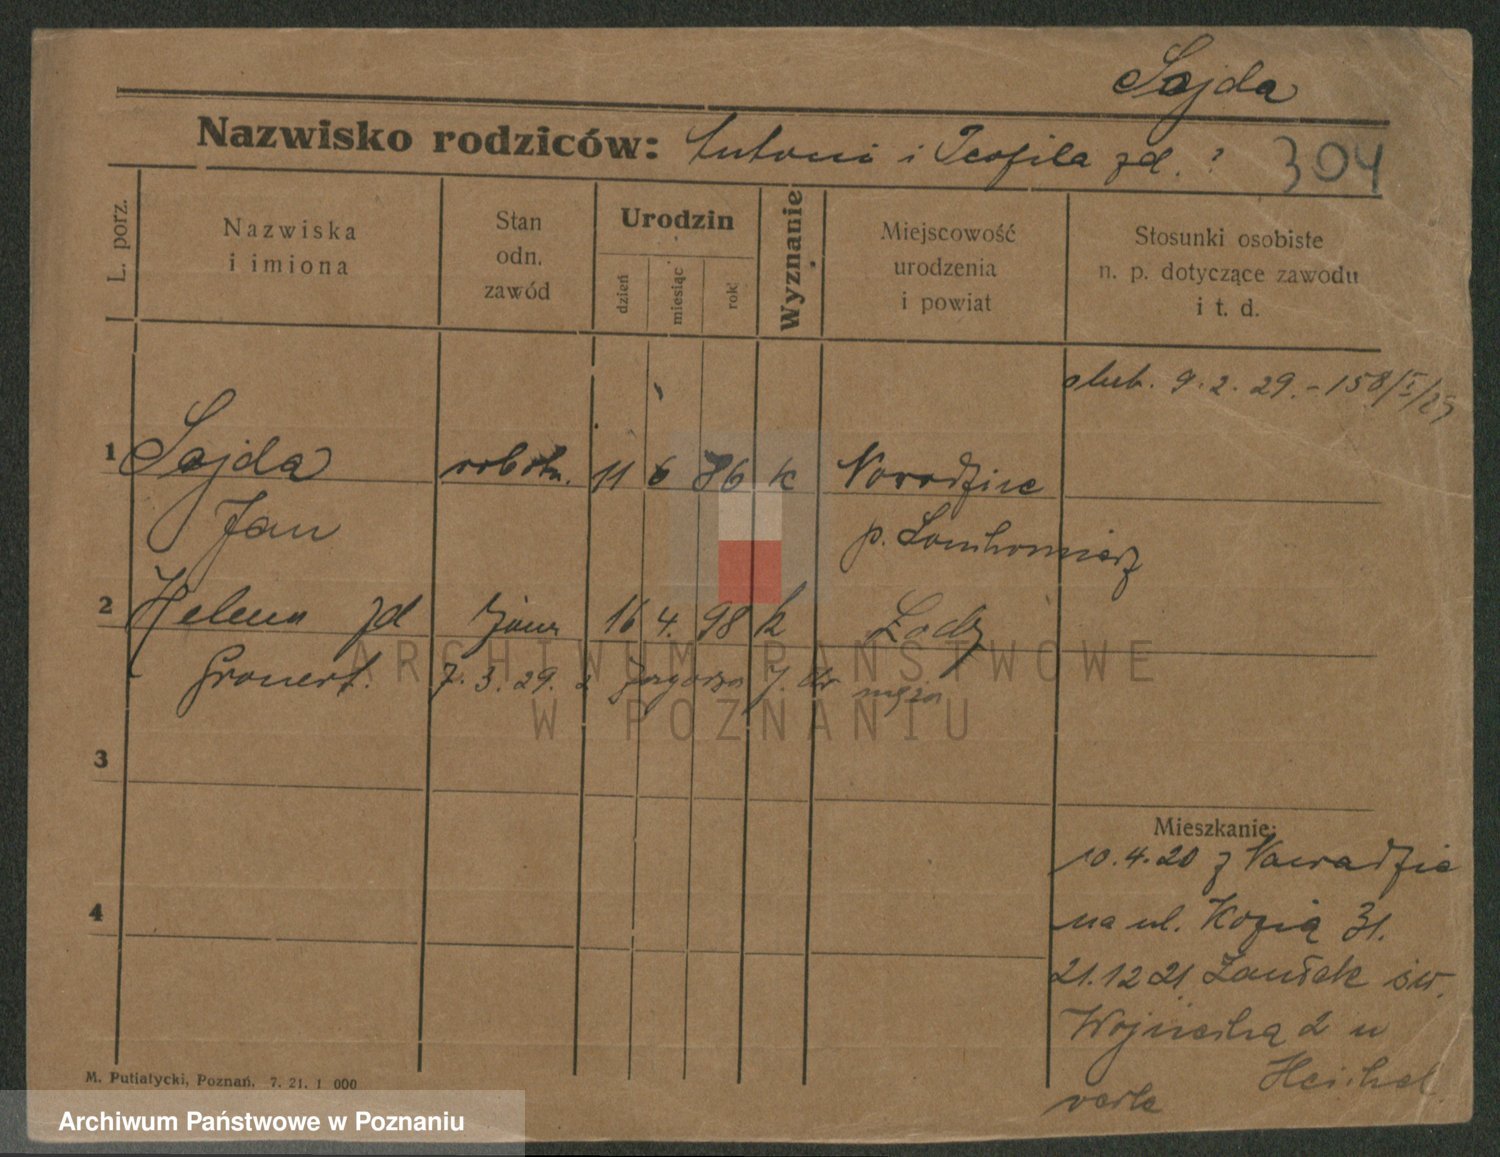 Sajda
Nazwisko rodziców: Antoni i Teofila zd. ?
304
L. porz.
Nazwiska
i imiona
Stan
odn.
zawód
Urodzin
dzień
miesiąc
rok
Wyznanie
Miejscowość
urodzenia
i powiat
Stosunki osobiste
n. p. dotyczące zawodu
i t. d.
ślub. 9.2.29.-158/I/29
1 Sajda robotn. 11 6 86 k
Jan p.
2 Helena zd żona 16 4. 98 k Łodz
Gronert. 7.3.29. z Zagórza 7. męża
3
4
Mieszkanie:
10.4.20 z
na ul. Kozią 31.
21.12 21 Zaułek św.
2 u
M. Putiatycki, Poznań. 7. 21. 1 000
ARCHIWUM PAŃSTWOWE
W POZNANIU
Archiwum Państwowe w Poznaniu